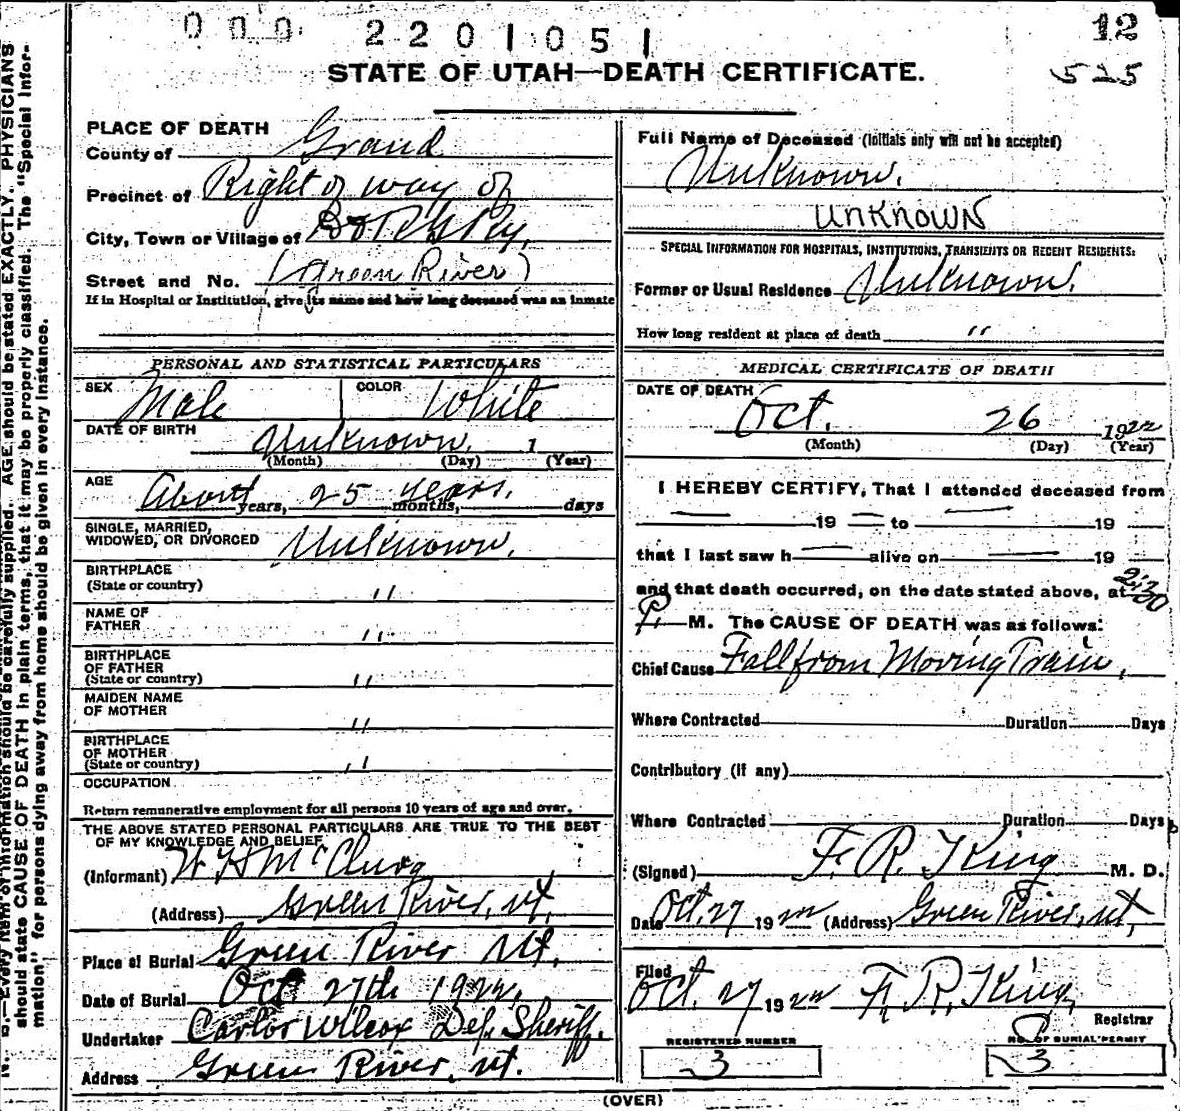 000 2201051
12
525
STATE OF UTAH—DEATH CERTIFICATE.
PLACE OF DEATH
County of Grand
Precinct of Right of way of
City, Town or Village of
Street and No. (Green River)
If in Hospital or Institution, give its name and how long deceased was an inmate
PERSONAL AND STATISTICAL PARTICULARS
SEX Male COLOR White
DATE OF BIRTH Unknown. 1
(Month) (Day) (Year)
AGE About years, 25 years. months, days
SINGLE, MARRIED,
WIDOWED, OR DIVORCED Unknown.
BIRTHPLACE
(State or country) "
NAME OF
FATHER "
BIRTHPLACE
OF FATHER
(State or country) "
MAIDEN NAME
OF MOTHER "
BIRTHPLACE
OF MOTHER
(State or country) "
OCCUPATION
Return remunerative employment for all persons 10 years of age and over.
THE ABOVE STATED PERSONAL PARTICULARS ARE TRUE TO THE BEST
OF MY KNOWLEDGE AND BELIEF
(Informant) W H McClurg
(Address) Green River, Ut.
Place of Burial Green River Ut.
Date of Burial Oct 27th 1922.
Undertaker Carlos Wilcox Dep. Sheriff.
Address Green River, Ut.
Full Name of Deceased (Initials only will not be accepted)
Unknown.
UNKNOWN
SPECIAL INFORMATION FOR HOSPITALS, INSTITUTIONS, TRANSIENTS OR RECENT RESIDENTS:
Former or Usual Residence Unknown.
How long resident at place of death "
MEDICAL CERTIFICATE OF DEATH
DATE OF DEATH
Oct. 26 1922
(Month) (Day) (Year)
I HEREBY CERTIFY, That I attended deceased from
— 19 — to — 19
that I last saw h — alive on — 19
and that death occurred, on the date stated above, at 2:30
P. M. The CAUSE OF DEATH was as follows:
Chief Cause Fall from Moving Train,
Where Contracted Duration Days
Contributory (if any)
Where Contracted Duration Days
(Signed) F. R. King M. D.
Date Oct. 27 1922 (Address) Green River, Ut,
Filed
Oct. 27 1922 F. R. King,
Registrar
REGISTERED NUMBER
3
NO. OF BURIAL PERMIT
3
(OVER)
AGE should be stated EXACTLY. PHYSICIANS
should state CAUSE OF DEATH in plain terms, that it may be properly classified. The "Special Infor-
mation" for persons dying away from home should be given in every instance.